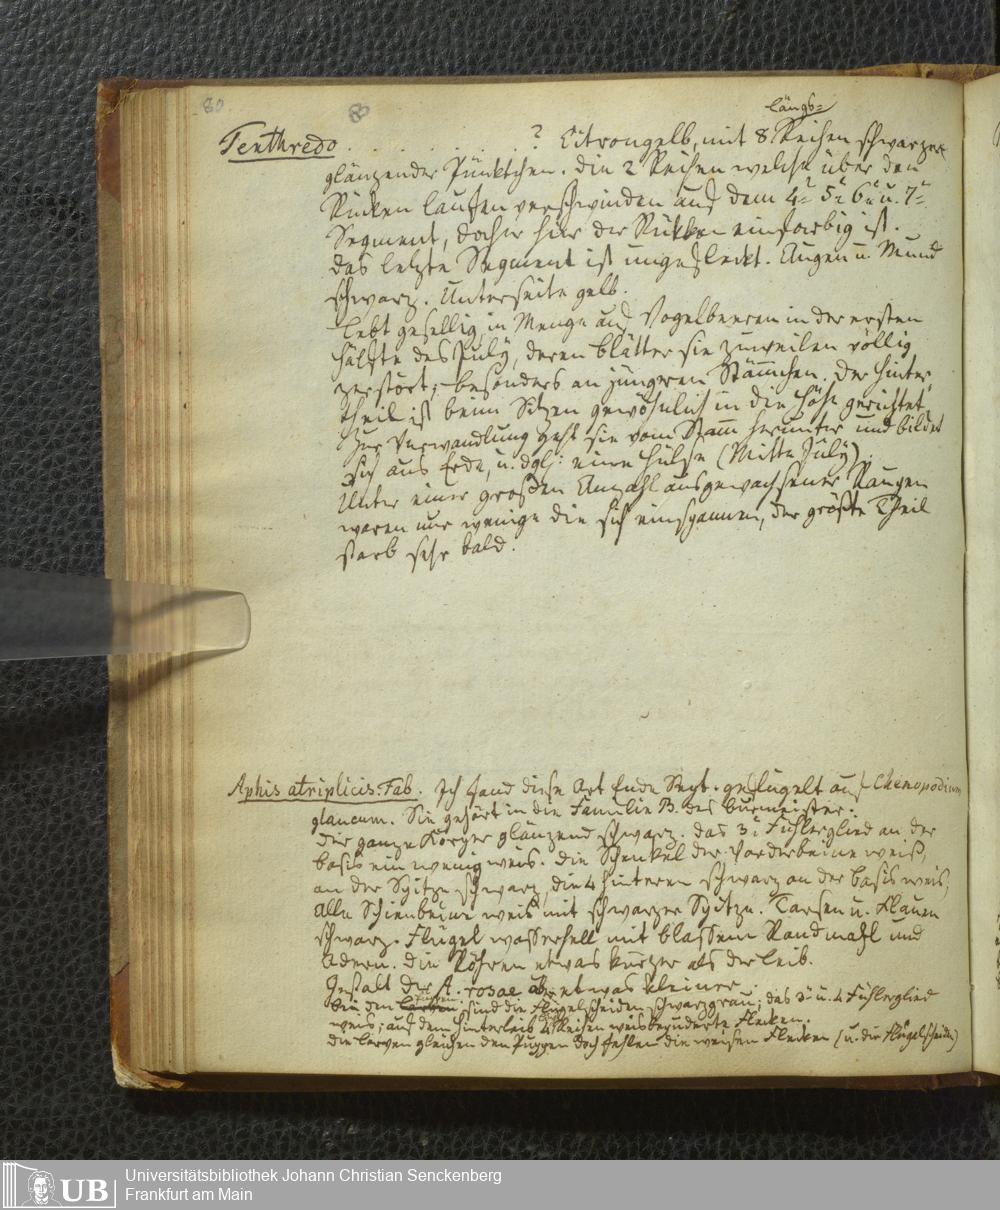 80
80
längs=
Tenthredo . . . . . . . . ? Citrongelb, mit 8 Reihen schwarzer
glänzender Pünktchen. Die 2 Reihen welche über den
Rücken laufen verschwinden auf dem 4= 5= 6= u. 7=
Segment, daher hier der Rükken einfarbig ist.
Das letzte Segment ist ungefleckt. Augen u. Mund
schwarz. Unterseite gelb.
Lebt gesellig in Menge auf Vogelbeeren in der ersten
Hälfte des July, deren Blätter sie zuweilen völlig
zerstört, besonders an jüngeren Stämchen. Der Hinter
theil ist beim Sitzen gewöhnlich in die Höhe gerichtet.
Zur Verwandlung geht sie vom Stam herunter und bildet
sich aus Erde, u. dglch: eine Hülse (Mitte July).
Unter einer großen Anzahl ausgewachsener Raupen
waren nur wenige die sich einspannen, der größte Theil
starb sehr bald.
Aphis atriplicis. Fab. Ich fand diese Art Ende Sept. geflügelt auf Chenopodium
glaucum. Sie gehört in die Familie B. des Burmeister.
Der ganze Körper glänzend schwarz. Das 3= Fühlerglied an der
Basis ein wenig weis. Die Schenkel der Vorderbeine weiß,
an der Spitze schwarz, die 4 hinteren schwarz an der Basis weis,
alle Schienbeine weis mit schwarzer Spitze. Tarsen u. Klauen
schwarz. Flügel wasserhell mit blassem Randmahl und
Adern. Die Röhren etwas kürzer als der Leib.
Gestalt der A. rosae aber etwas kleiner.
Puppen
Bei den Larven sind die Flügelscheiden schwarzgrau; das 3= u. 4 Fühlerglied
weis; auf dem Hinterleib 4 Reihen weisbepuderte Flecken.
Die Larven gleichen den Puppen doch fehlen die weisen Flecken (u. die Flügelscheiden)
UB
Universitätsbibliothek Johann Christian Senckenberg
Frankfurt am Main